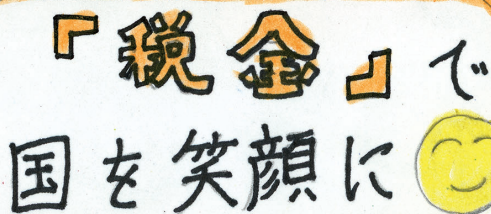 『税金』で
国を笑顔に